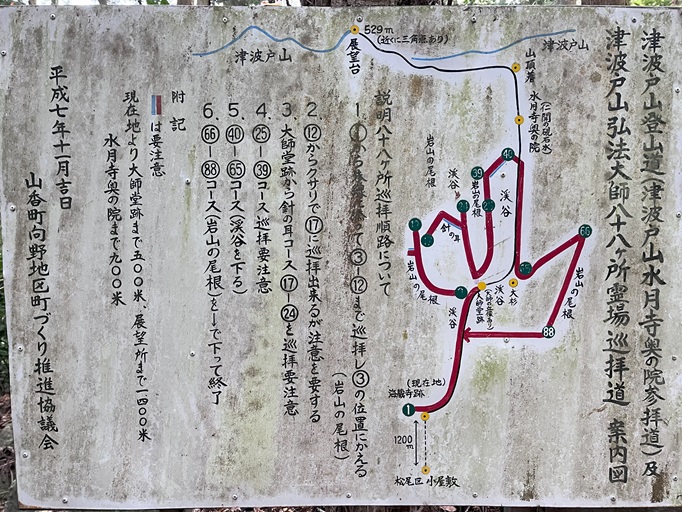 津波戸山登山道(津波戸山水月寺奥の院参拝道)及
津波戸山弘法大師八十八ヶ所霊場巡拝道 案内図
津波戸山
529m
(近くに三角点あり)
展望台
津波戸山
山頂着
水月寺奥の院
岩山の尾根
渓谷
39
岩山の尾根
40
渓谷
針の耳
12
岩山の尾根
渓谷
大師堂跡
渓谷
大杉
66
岩山の尾根
88
(現在地)
海蔵寺跡
1
1200m
松尾区 小屋敷
説明八十八ヶ所巡拝順路について
③―⑫まで巡拝し③の位置にかえる
(岩山の尾根)
2、⑫からクサリで⑰に巡拝出来るが注意を要する
3、大師堂跡から針の耳コース⑰―㉔を巡拝要注意
4、㉕―㊴コース巡拝要注意
5、㊵―65コース(渓谷を下る)
6、66―88コース(岩山の尾根を)下って終了
附記
は要注意
現在地より大師堂跡まで五〇〇米、展望所まで一四〇〇米
水月寺奥の院まで九〇〇米
平成七年十一月吉日
山香町向野地区町づくり推進協議会